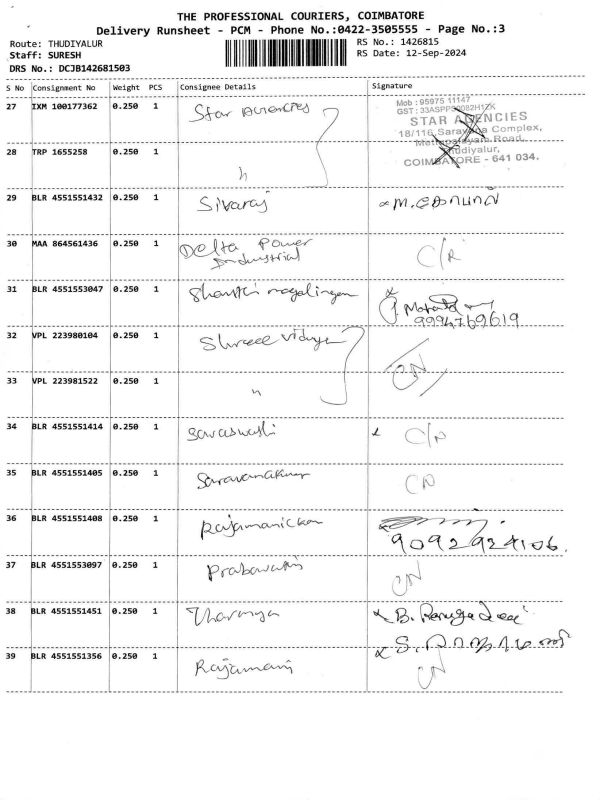 THE PROFESSIONAL COURIERS, COIMBATORE
Delivery Runsheet - PCM - Phone No.:0422-3505555 - Page No.:3
Route: THUDIYALUR
RS No.: 1426815
Staff: SURESH
RS Date: 12-Sep-2024
DRS No.: DCJB142681503
S No Consignment No Weight PCS Consignee Details Signature
27 IXM 100177362 0.250 1 Star Agencies
Mob : 95975 11147
STAR AGENCIES
18/116, Complex,
Road,
Thudiyalur,
COIMBATORE - 641 034.
28 TRP 1655258 0.250 1 "
29 BLR 4551551432 0.250 1 Sivaraj
30 MAA 864561436 0.250 1 Delta Power
Industrial
31 BLR 4551553047 0.250 1 Shanthi nagalingam
9994769619
32 VPL 223980104 0.250 1 Shree Vidya
33 VPL 223981522 0.250 1 " CN
34 BLR 4551551414 0.250 1 Saraswathi C/N
35 BLR 4551551405 0.250 1 Saravanakumar CN
36 BLR 4551551408 0.250 1 Rajamanickam
9092924106.
37 BLR 4551553097 0.250 1 Prabavathi CN
38 BLR 4551551451 0.250 1 Tharanya B.
39 BLR 4551551356 0.250 1 Rajamani CN